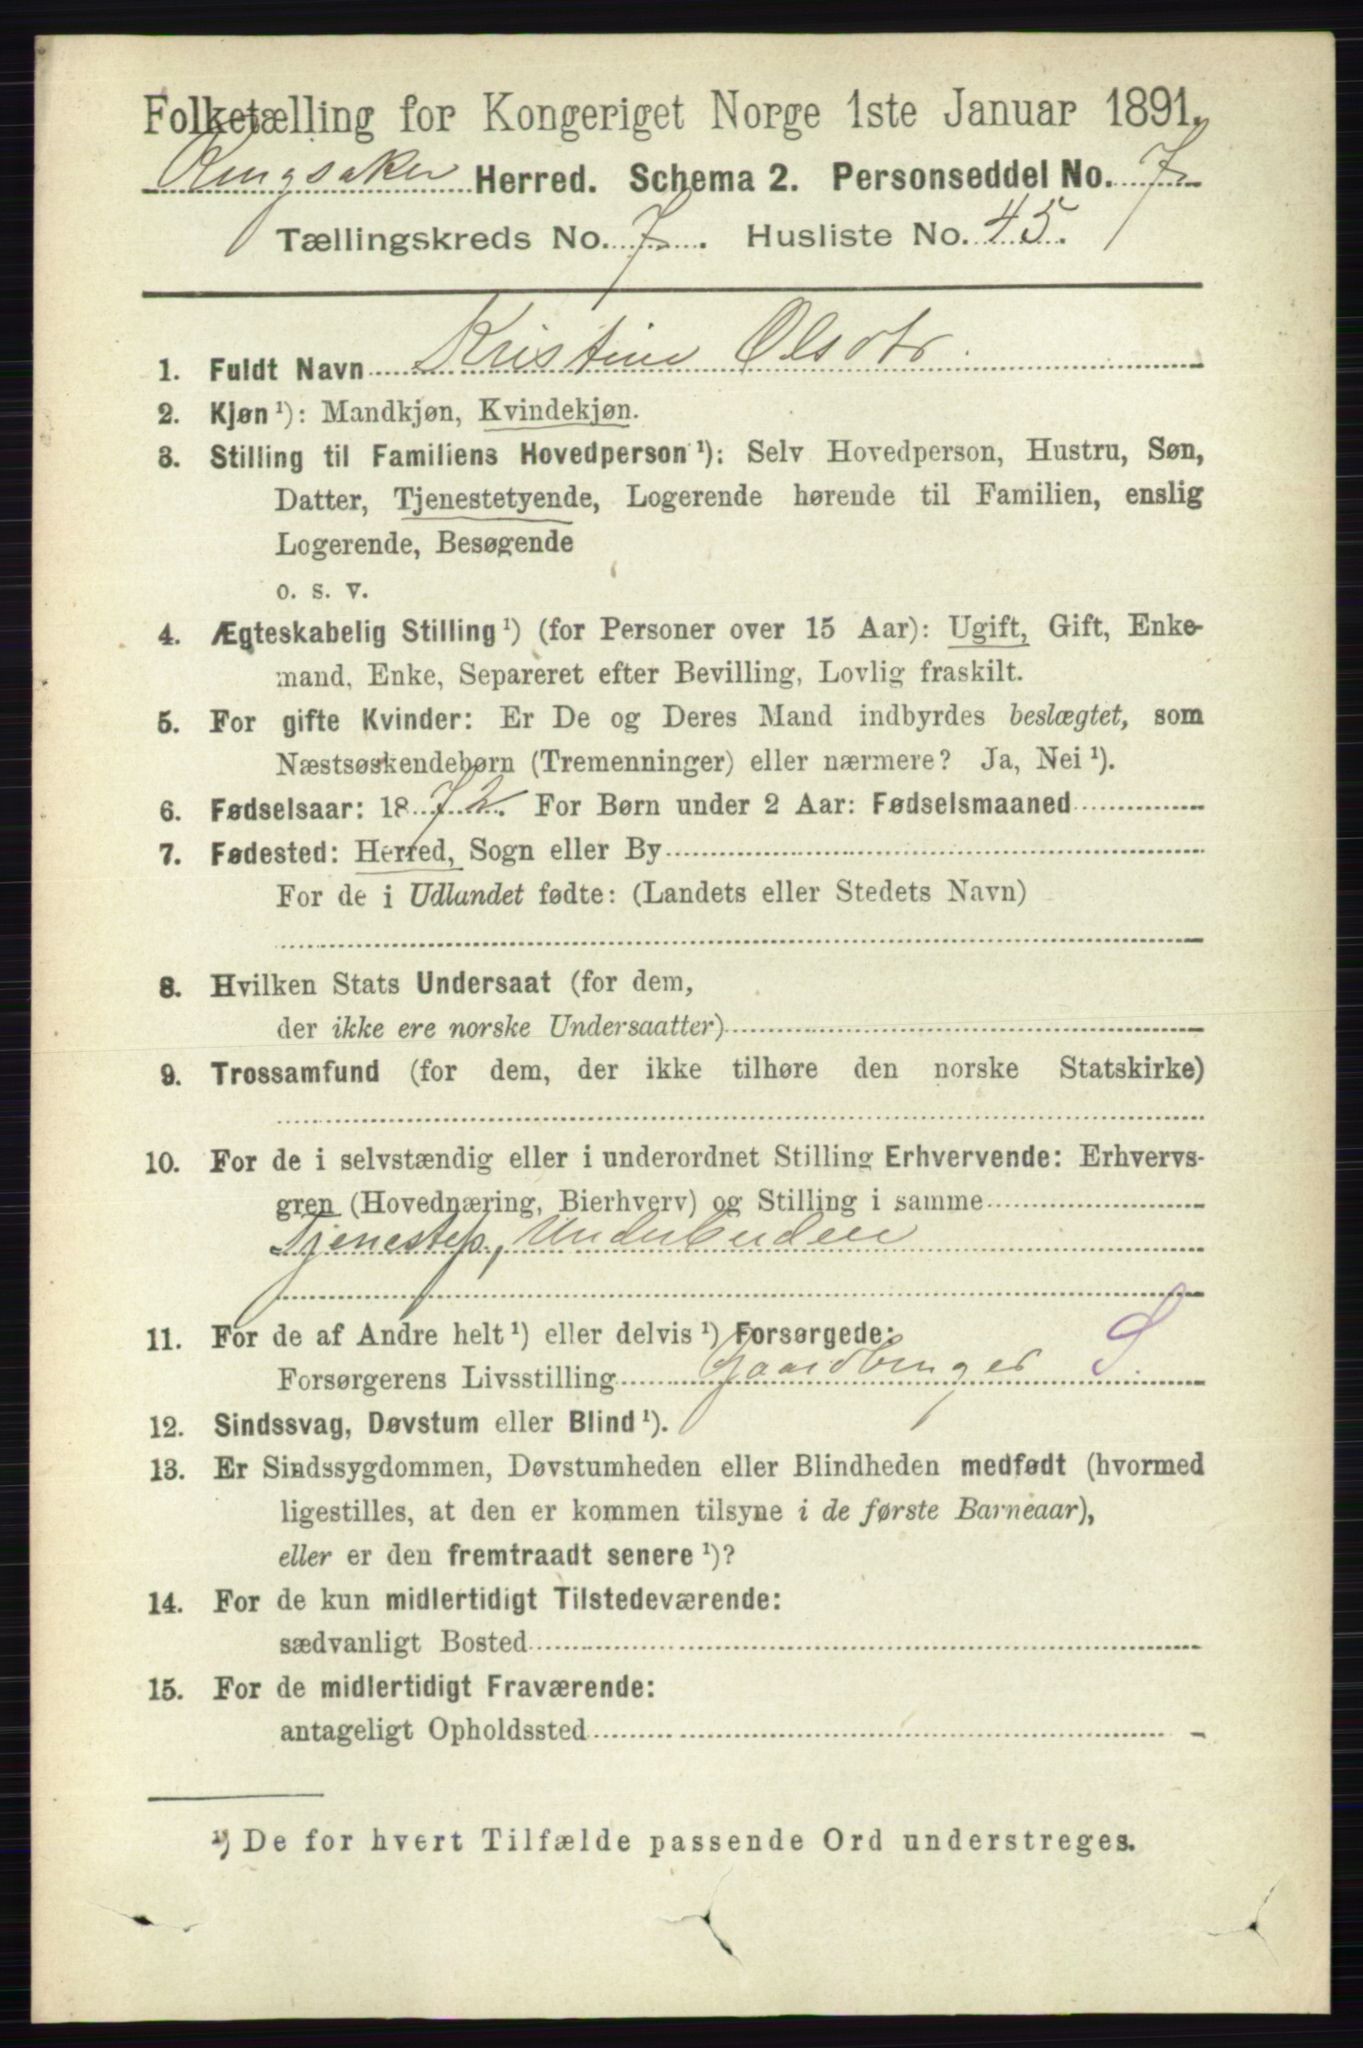 Folketælling for Kongeriget Norge 1ste Januar 1891.
Ringsaker Herred. Schema 2. Personseddel No. 7
Tællingskreds No. 7. Husliste No. 45.
1. Fuldt Navn Kristine Olsdtr.
2. Kjøn ¹): Mandkjøn, Kvindekjøn.
3. Stilling til Familiens Hovedperson ¹): Selv Hovedperson, Hustru, Søn,
Datter, Tjenestetyende, Logerende hørende til Familien, enslig
Logerende, Besøgende
o. s. v.
4. Ægteskabelig Stilling ¹) (for Personer over 15 Aar): Ugift, Gift, Enke-
mand, Enke, Separeret efter Bevilling, Lovlig fraskilt.
5. For gifte Kvinder: Er De og Deres Mand indbyrdes beslægtet, som
Næstsøskendebørn (Tremenninger) eller nærmere? Ja, Nei ¹).
6. Fødselsaar: 1872. For Børn under 2 Aar: Fødselsmaaned
7. Fødested: Herred, Sogn eller By
For de i Udlandet fødte: (Landets eller Stedets Navn)
8. Hvilken Stats Undersaat (for dem,
der ikke ere norske Undersaatter)
9. Trossamfund (for dem, der ikke tilhøre den norske Statskirke)
10. For de i selvstændig eller i underordnet Stilling Erhvervende: Erhvervs-
gren (Hovednæring, Bierhverv) og Stilling i samme
Tjenestep, Underbuden
11. For de af Andre helt ¹) eller delvis ¹) Forsørgede:
Forsørgerens Livsstilling Gaardbruger S.
12. Sindssvag, Døvstum eller Blind ¹).
13. Er Sindssygdommen, Døvstumheden eller Blindheden medfødt (hvormed
ligestilles, at den er kommen tilsyne i de første Barneaar),
eller er den fremtraadt senere ¹)?
14. For de kun midlertidigt Tilstedeværende:
sædvanligt Bosted
15. For de midlertidigt Fraværende:
antageligt Opholdssted
¹) De for hvert Tilfælde passende Ord understreges.